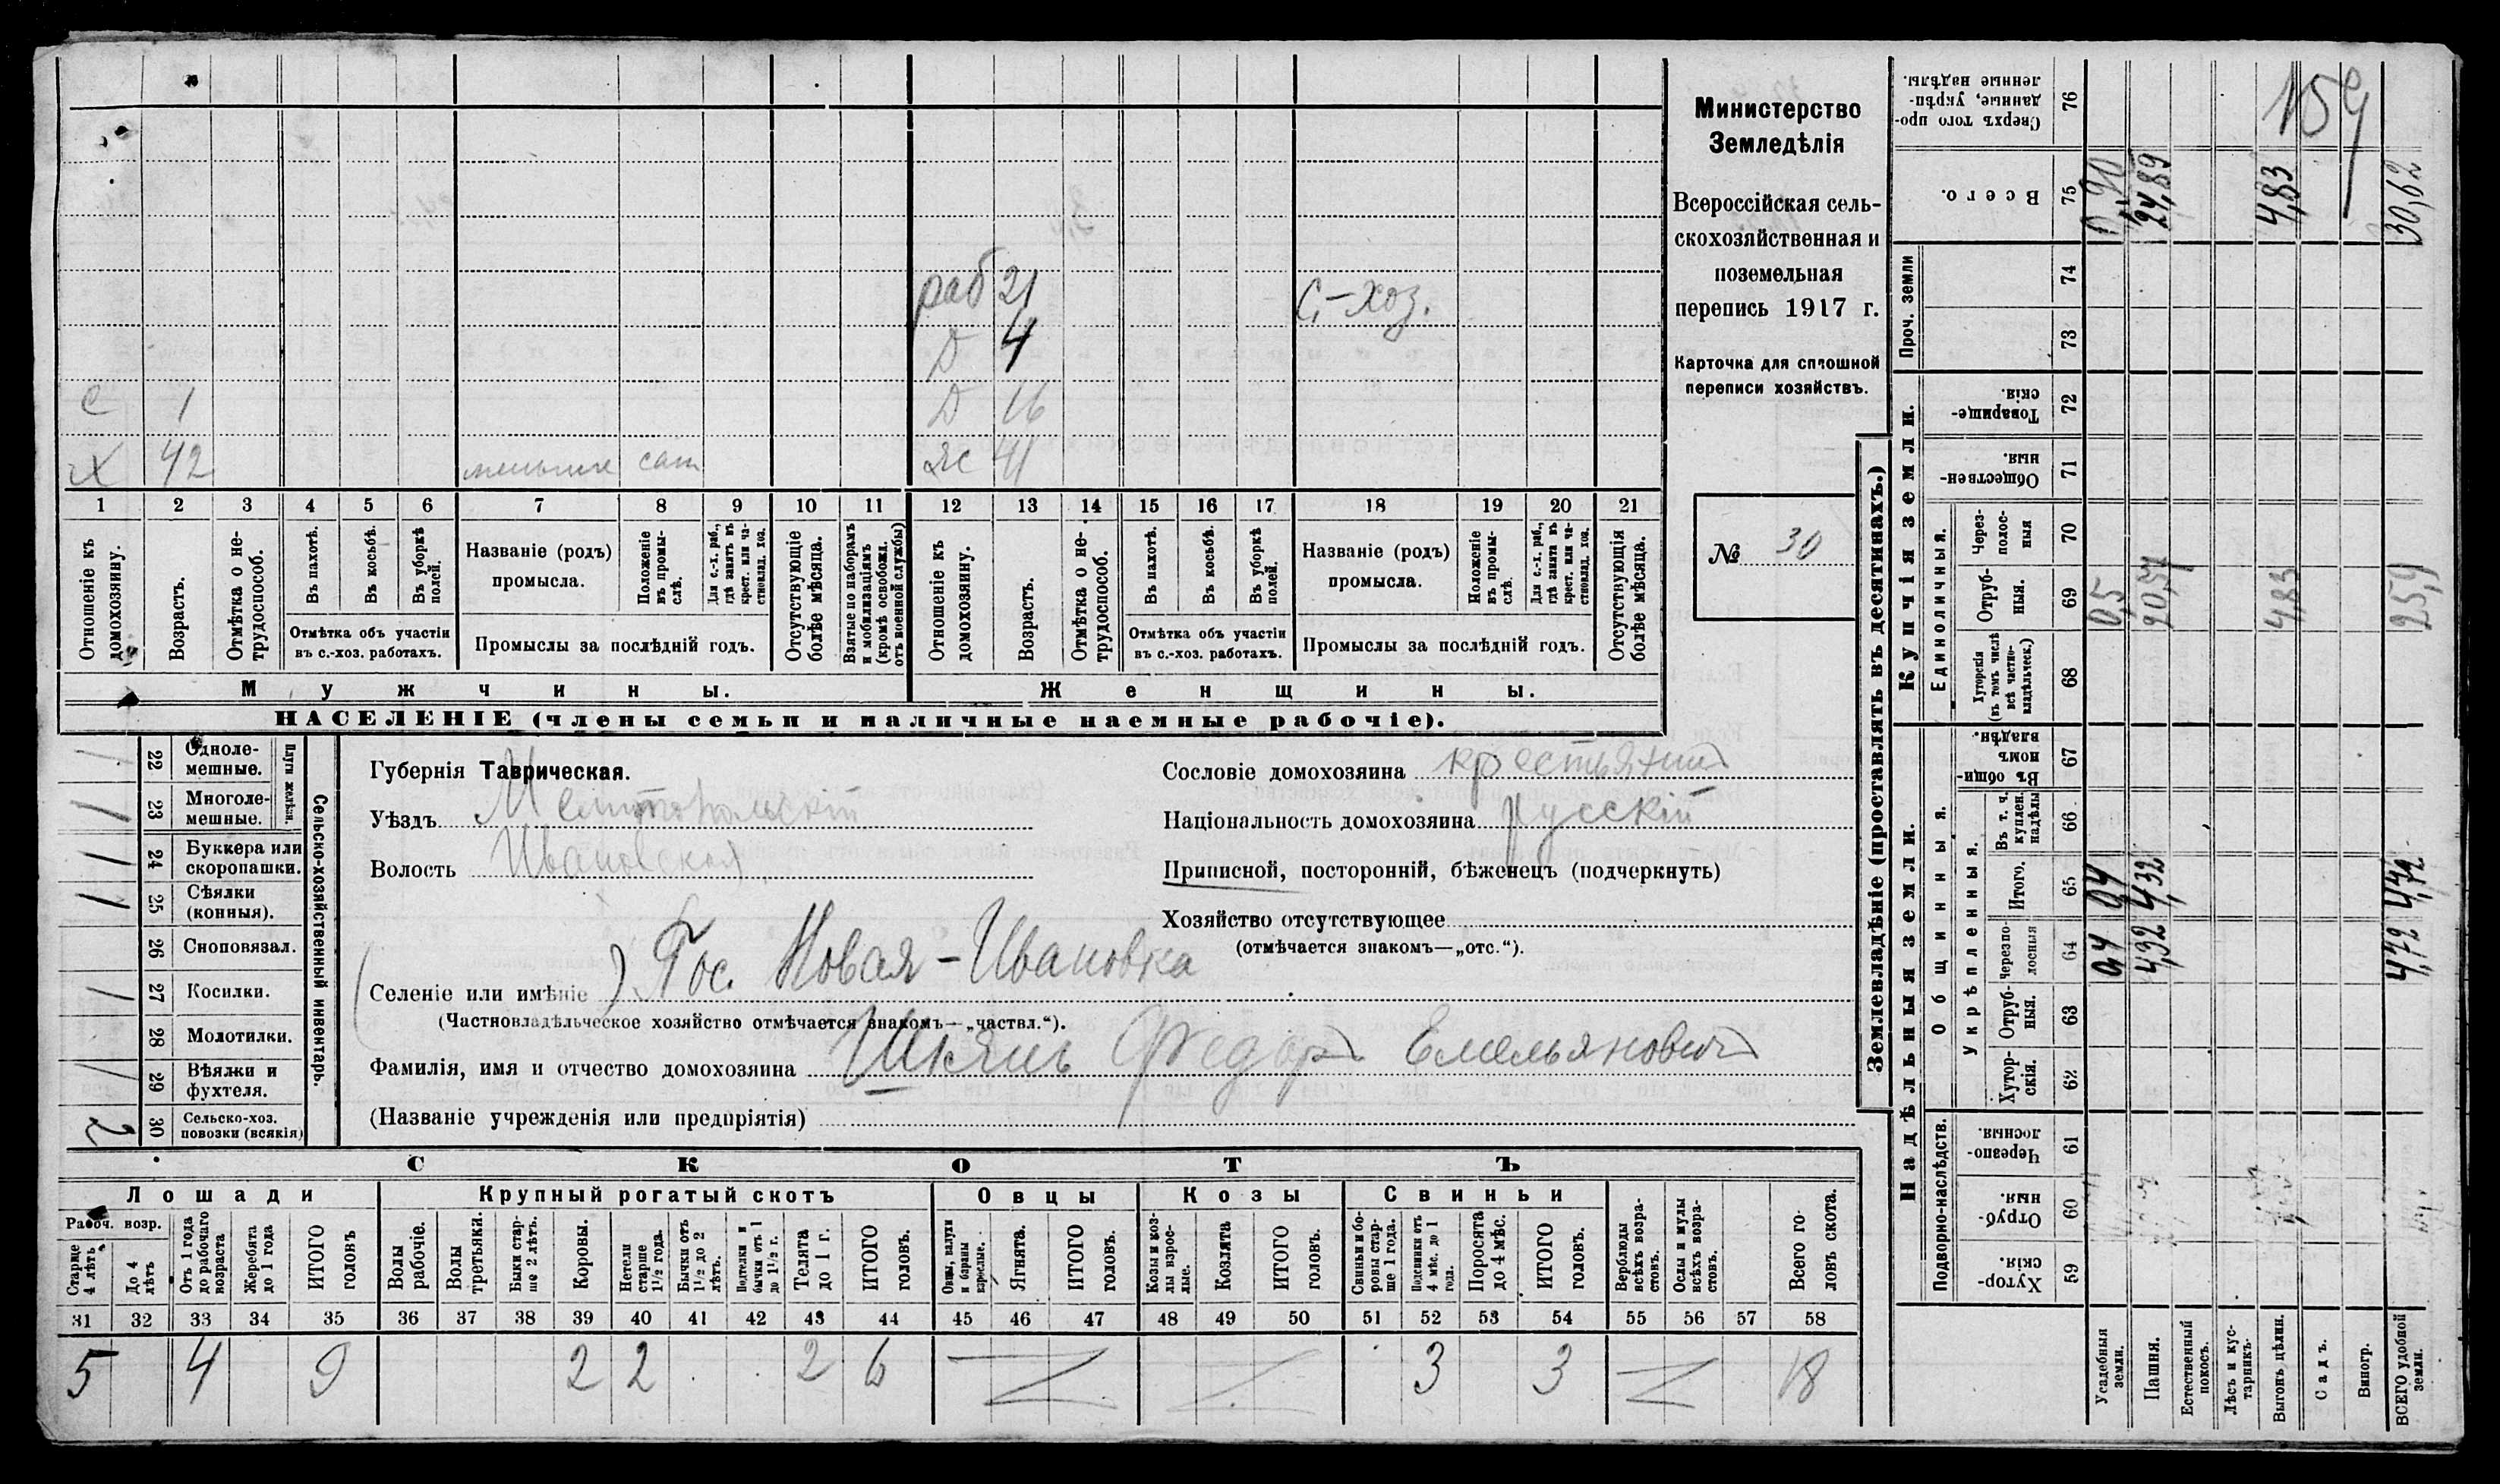 раб 21 С.-хоз.
Д 4
с 1 Д 16
х 42 сам жс 41
1 2 3 4 5 6 7 8 9 10 11 12 13 14 15 16 17 18 19 20 21
Отношеніе къ домохозяину.
Возрастъ.
Отмѣтка о не-трудоспособ.
Въ пахотѣ.
Въ косьбѣ.
Въ уборкѣ полей.
Отмѣтка объ участіи
въ с.-хоз. работахъ.
Названіе (родъ)
промысла.
Положеніе въ промы-слѣ.
Для с.-х. раб., гдѣ занятъ въ крест. или ча-стновлад. хоз.
Промыслы за послѣдній годъ.
Отсутствующіе болѣе мѣсяца.
Взятые по наборамъ и мобилизаціямъ (кромѣ освобожд. отъ военной службы)
Отношеніе къ домохозяину.
Возрастъ.
Отмѣтка о не-трудоспособ.
Въ пахотѣ.
Въ косьбѣ.
Въ уборкѣ полей.
Отмѣтка объ участіи
въ с.-хоз. работахъ.
Названіе (родъ)
промысла.
Положеніе въ промы-слѣ.
Для с.-х. раб., гдѣ занята въ крест. или ча-стновлад. хоз.
Промыслы за послѣдній годъ.
Отсутствующія болѣе мѣсяца.
Мужчины. Женщины.
НАСЕЛЕНІЕ (члены семьи и наличные наемные рабочіе).
Министерство
Земледѣлія
Всероссійская сель-
скохозяйственная и
поземельная
перепись 1917 г.
Карточка для сплошной
переписи хозяйствъ.
№ 30
Сельско-хозяйственный инвентарь.
Плуги желѣзн.
1 22 Одноле-мешные.
1 23 Многоле-мешные.
1 24 Буккера или скоропашки.
1 25 Сѣялки (конныя).
26 Сноповязал.
1 27 Косилки.
28 Молотилки.
1 29 Вѣялки и фухтеля.
2 30 Сельско-хоз. повозки (всякія)
Губернія Таврическая.
Уѣздъ Мелитопольскій
Волость Ивановская
Сословіе домохозяина крестьянинъ
Національность домохозяина русскій
Приписной, посторонній, бѣженецъ (подчеркнуть)
Хозяйство отсутствующее
(отмѣчается знакомъ—„отс.“).
Селеніе или имѣніе ) Пос. Новая-Ивановка
(Частновладѣльческое хозяйство отмѣчается знакомъ—„частвл.“).
Фамилія, имя и отчество домохозяина Федоръ Емельяновичъ
(Названіе учрежденія или предпріятія)
СКОТЪ
Лошади Крупный рогатый скотъ Овцы Козы Свиньи
Рабоч. возр.
Старше 4 лѣтъ
До 4 лѣтъ
Отъ 1 года до рабочаго возраста
Жеребята до 1 года
ИТОГО головъ
Волы рабочіе.
Волы третьяки.
Быки стар-ше 2 лѣтъ.
Коровы.
Нетели старше 1½ года.
Бычки отъ 1½ до 2 лѣтъ.
Подтелки и бычки отъ 1 до 1½ г.
Телята до 1 г.
ИТОГО головъ.
Овцы, валухи и бараны взрослые.
Ягнята.
ИТОГО головъ.
Козы и коз-лы взрос-лые.
Козлята
ИТОГО головъ.
Свиньи и бо-ровы стар-ше 1 года.
Подсвинки отъ 4 мѣс. до 1 года.
Поросята до 4 мѣс.
ИТОГО головъ.
Верблюды всѣхъ возра-стовъ.
Ослы и мулы всѣхъ возра-стовъ.
Всего го-ловъ скота.
31 32 33 34 35 36 37 38 39 40 41 42 43 44 45 46 47 48 49 50 51 52 53 54 55 56 57 58
5 4 9 2 2 2 6 3 3 18
Землевладѣніе (проставлять въ десятинахъ.)
Надѣльныя земли.
Купчія земли.
Подворно-наслѣдств.
Общинныя.
Укрѣпленныя.
Единоличныя.
Проч. земли
Хутор-скія. 59
Отруб-ныя. 60
Черезпо-лосныя. 61
Хутор-скія. 62
Отруб-ныя. 63
Черезпо-лосныя 64
Итого. 65
Въ т. ч. куплен. надѣлы 66
Въ общи-номъ владѣн. 67
Хуторскія (въ томъ числѣ всѣ частно-владѣльческ.) 68
Отруб-ныя. 69
Через-полос-ныя 70
Обществен-ныя. 71
Товарище-скія. 72
73
74
Всего. 75
Сверхъ того про-данные, укрѣп-ленные надѣлы. 76
Усадебныя земли. 0,4 0,4 0,5 0,90
Пашня. 4,32 4,32 20,57 24,89
Естественный покосъ.
Лѣсъ и кус-тарникъ.
Выгонъ цѣлин. 4,83 4,83
Садъ.
Виногр.
ВСЕГО удобной земли. 4,72 4,72 25,9 30,62